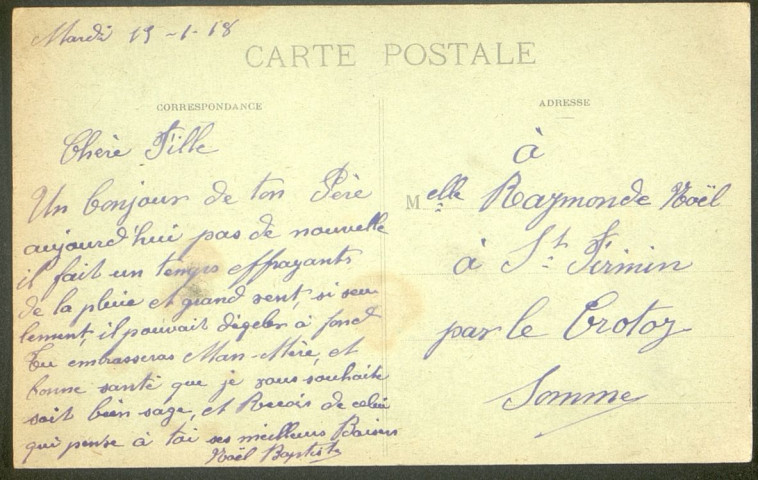 Mardi 15-1-18
CARTE POSTALE
CORRESPONDANCE
Chère Fille
Un bonjour de ton Père
aujourd'hui pas de nouvelle
il fait un temps effrayants
de la pluie et grand vent, si seu
lement, il pouvait dégeler à fond
Tu embrasseras Man-Mère, et
bonne santé que je vous souhaite
soit bien sage, et Recois de celui
qui pense à toi ses meilleurs Baisers
Noël Baptiste
ADRESSE
à
Melle Raymonde Noël
à St. Firmin
par le Crotoy
Somme